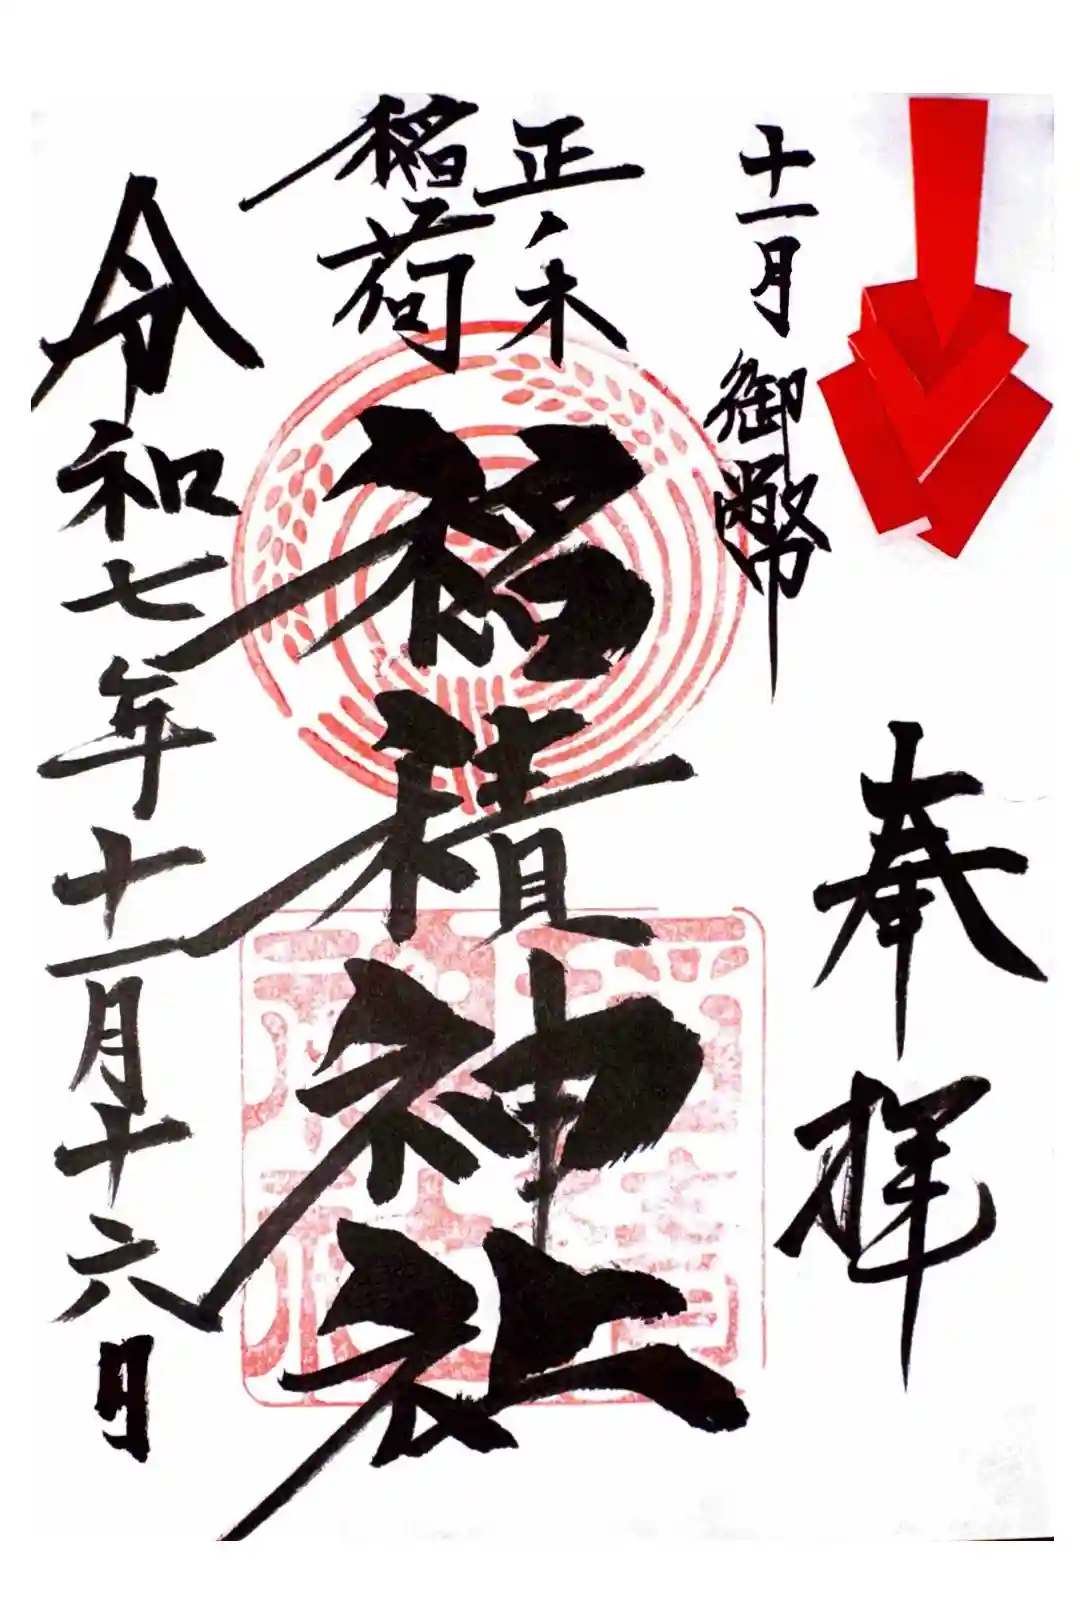 十一月 御幣
奉拝
正ノ木
稲荷
稲積神社
令和七年十一月十六日
稲積神社